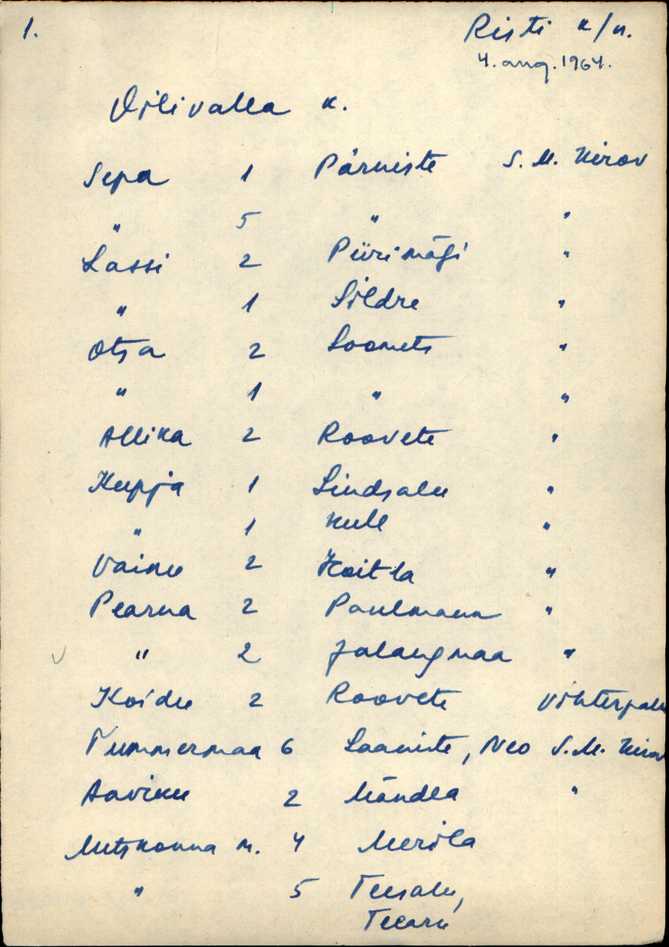 1. Risti k/n.
4. aug. 1964.
Vilivalla k.
Sepa 1 Pärniste S. M. Kirov
" 5 " "
Lassi 2 Piirimägi "
" 1 Sildre "
Otsa 2 Soomets "
" 1 " "
Allika 2 Roovete "
Kupja 1 Lindsalu "
" 1 Kull "
Vainu 2 Koitla "
Pearna 2 Paulmann "
v " 2 Jalangmaa "
Koidu 2 Roovete Vihterpalu
Tummermaa 6 Laaniste, Neo S. M. Kirov
Aaviku 2 Mändla "
Metskonna m. 4 Merila
" 5 Teesalu,